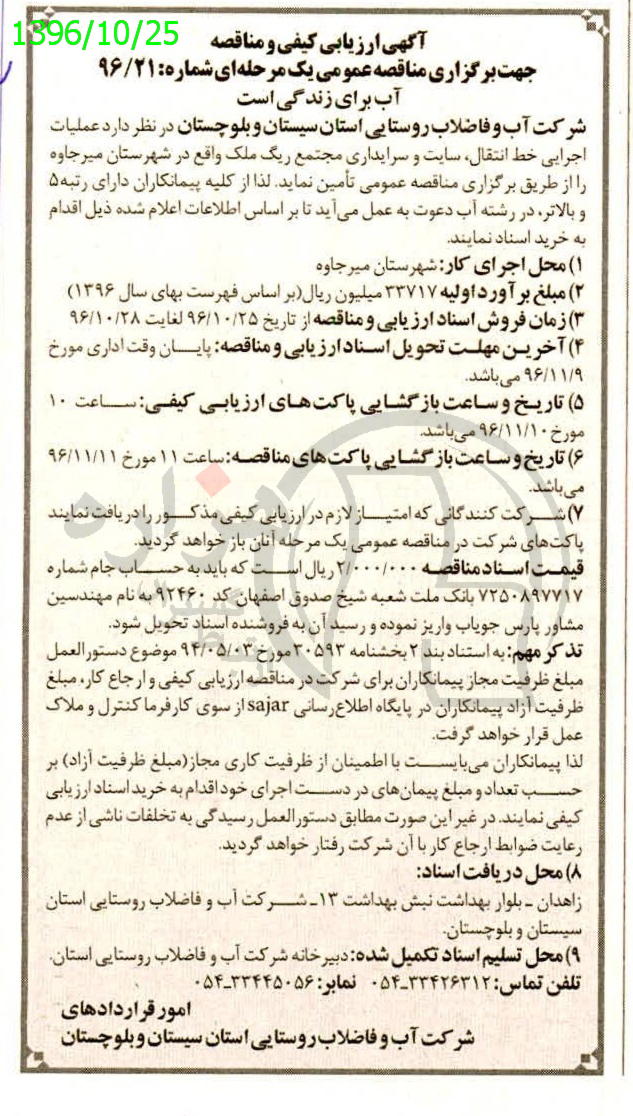 1396/10/25
آگهی ارزیابی کیفی و مناقصه
جهت برگزاری مناقصه عمومی یک مرحله‌ای شماره: ۹۶/۲۱
آب برای زندگی است
شرکت آب و فاضلاب روستایی استان سیستان و بلوچستان در نظر دارد عملیات
اجرایی خط انتقال، سایت و سرایداری مجتمع ریگ ملک واقع در شهرستان میرجاوه
را از طریق برگزاری مناقصه عمومی تأمین نماید. لذا از کلیه پیمانکاران دارای رتبه ۵
و بالاتر، در رشته آب دعوت به عمل می‌آید تا بر اساس اطلاعات اعلام شده ذیل اقدام
به خرید اسناد نمایند.
۱) محل اجرای کار: شهرستان میرجاوه
۲) مبلغ برآورد اولیه ۳۳۷۱۷ میلیون ریال(بر اساس فهرست بهای سال ۱۳۹۶)
۳) زمان فروش اسناد ارزیابی و مناقصه از تاریخ ۹۶/۱۰/۲۵ لغایت ۹۶/۱۰/۲۸
۴) آخرین مهلت تحویل اسناد ارزیابی و مناقصه: پایان وقت اداری مورخ
۹۶/۱۱/۹ می‌باشد.
۵) تاریخ و ساعت بازگشایی پاکت‌های ارزیابی کیفی: ساعت ۱۰
مورخ ۹۶/۱۱/۱۰ می‌باشد.
۶) تاریخ و ساعت بازگشایی پاکت‌های مناقصه: ساعت ۱۱ مورخ ۹۶/۱۱/۱۱
می‌باشد.
۷) شرکت کنندگانی که امتیاز لازم در ارزیابی کیفی مذکور را دریافت نمایند
پاکت‌های شرکت در مناقصه عمومی یک مرحله آنان باز خواهد گردید.
قیمت اسناد مناقصه ۲/۰۰۰/۰۰۰ ریال است که باید به حساب جام شماره
۷۲۵۰۸۹۷۷۱۷ بانک ملت شعبه شیخ صدوق اصفهان کد ۹۲۴۶۰ به نام مهندسین
مشاور پارس جویاب واریز نموده و رسید آن به فروشنده اسناد تحویل شود.
تذکر مهم: به استناد بند ۲ بخشنامه ۳۰۵۹۳ مورخ ۹۴/۰۵/۰۳ موضوع دستورالعمل
مبلغ ظرفیت مجاز پیمانکاران برای شرکت در مناقصه ارزیابی کیفی و ارجاع کار، مبلغ
ظرفیت آزاد پیمانکاران در پایگاه اطلاع‌رسانی sajar از سوی کارفرما کنترل و ملاک
عمل قرار خواهد گرفت.
لذا پیمانکاران می‌بایست با اطمینان از ظرفیت کاری مجاز(مبلغ ظرفیت آزاد) بر
حسب تعداد و مبلغ پیمان‌های در دست اجرای خود اقدام به خرید اسناد ارزیابی
کیفی نمایند. در غیر این صورت مطابق دستورالعمل رسیدگی به تخلفات ناشی از عدم
رعایت ضوابط ارجاع کار با آن شرکت رفتار خواهد گردید.
۸) محل دریافت اسناد:
زاهدان ـ بلوار بهداشت نبش بهداشت ۱۳ـ شرکت آب و فاضلاب روستایی استان
سیستان و بلوچستان.
۹) محل تسلیم اسناد تکمیل شده: دبیرخانه شرکت آب و فاضلاب روستایی استان.
تلفن تماس: ۳۳۴۲۶۳۱۲ـ۰۵۴ نمابر: ۳۳۴۴۵۰۵۶ـ۰۵۴
امور قراردادهای
شرکت آب و فاضلاب روستایی استان سیستان و بلوچستان